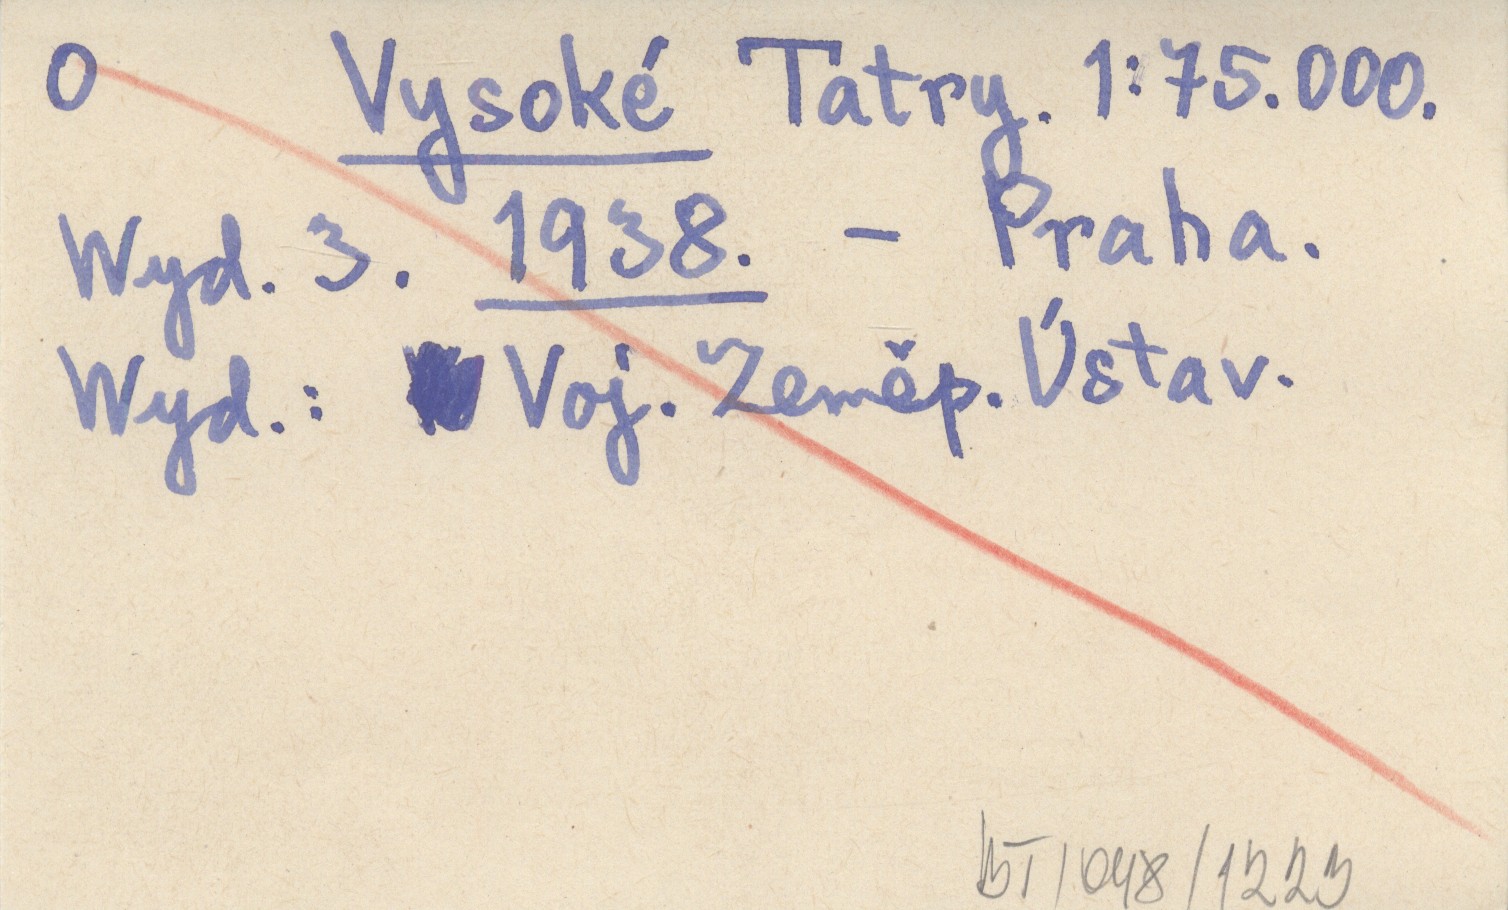 O Vysoké Tatry. 1:75.000.
Wyd. 3. 1938. - Praha.
Wyd.: Voj. Zeměp. Ústav.
BT/048/1223